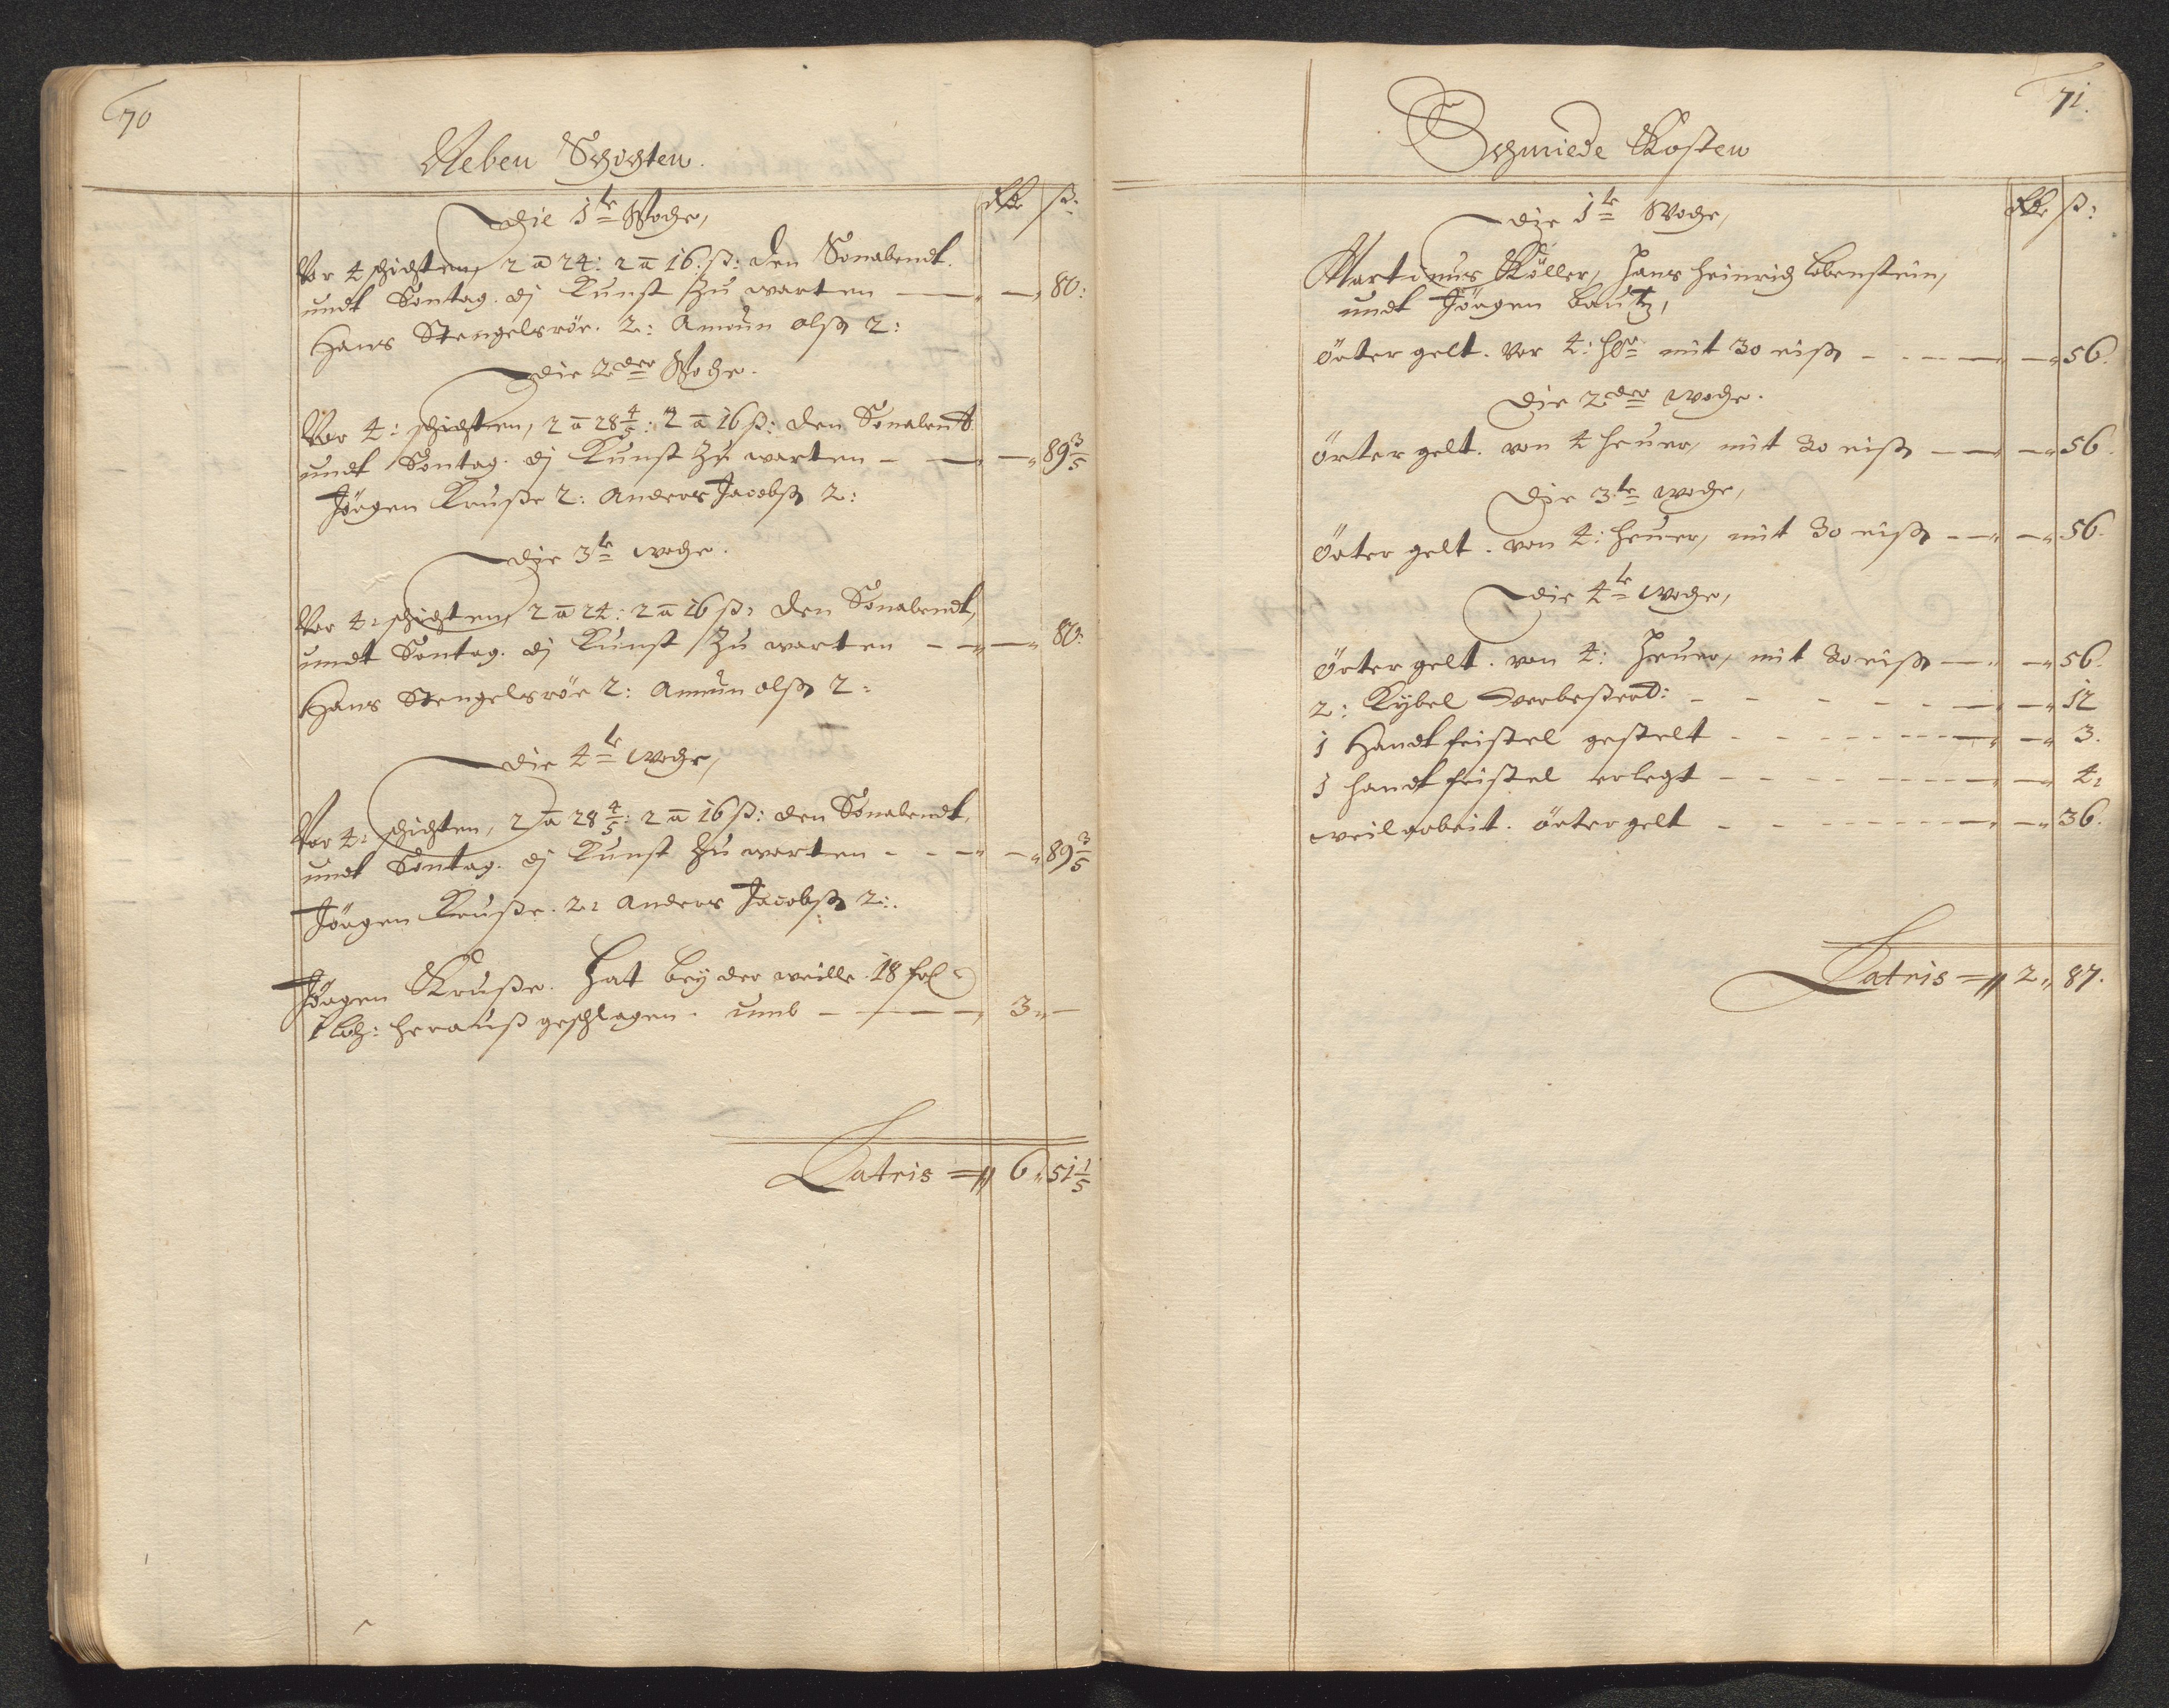 70
Neben Schichten.
Rdr ß:
Die 1te Woche,
Vor 4 schichten, 2 a 24: 2 a 16: ß: den Sonabendt.
undt Sontag. dj Kunst Zu warten — — 80:
Hans Stengelsröe. 2: Amun olß 2:
Die 2der Woche.
Vor 4: schichten, 2 a 28 4/5: 2 a 16 ß: den Sonabendt
undt Sontag. dj Kunst Zu warten — — 89 3/5
Jörgen Kruße 2: Anders Jacobß 2:
Die 3te woche.
Vor 4: schichten, 2 a 24: 2 a 16 ß: den Sonabendt,
undt Sontag. dj Kunst Zu warten — — 80:
Hans Stengelsröe 2: Amun olß 2:
Die 4te woche,
Vor 4: schichten, 2 a 28 4/5: 2 a 16 ß: den Sonabendt,
undt Sontag. dj Kunst Zu warten — — 89 3/5
Jörgen Kruße. 2: Anders Jacobß 2:
Jörgen Kruße. Hat bey der weille 18
herauß geschlagen. umb — 3 —
Latris = 6 51 1/5
71.
Schmiede Kosten
Rdr ß:
Die 1te Woche,
Martinus Köller, Hans Heinrich Lobenstein,
undt Jörgen Bautz,
Örter gelt. Vor 4: mit 30 eiß — — 56.
Die 2der woche.
Örter gelt. von 4 heuer, mit 30 eiß — — 56.
Die 3te woche,
Örter gelt. von 4: heuer, mit 30 eiß — — 56.
Die 4te woche,
Örter gelt. von 4: Heuer, mit 30 eiß — — 56.
2: Kybel verbeßerd: — — 12
1 Handt feistel gestelt — — 3.
1 handt feistel erlegt — — 4:
weil arbeit. örter gelt — — 36.
Latris = 2 87.